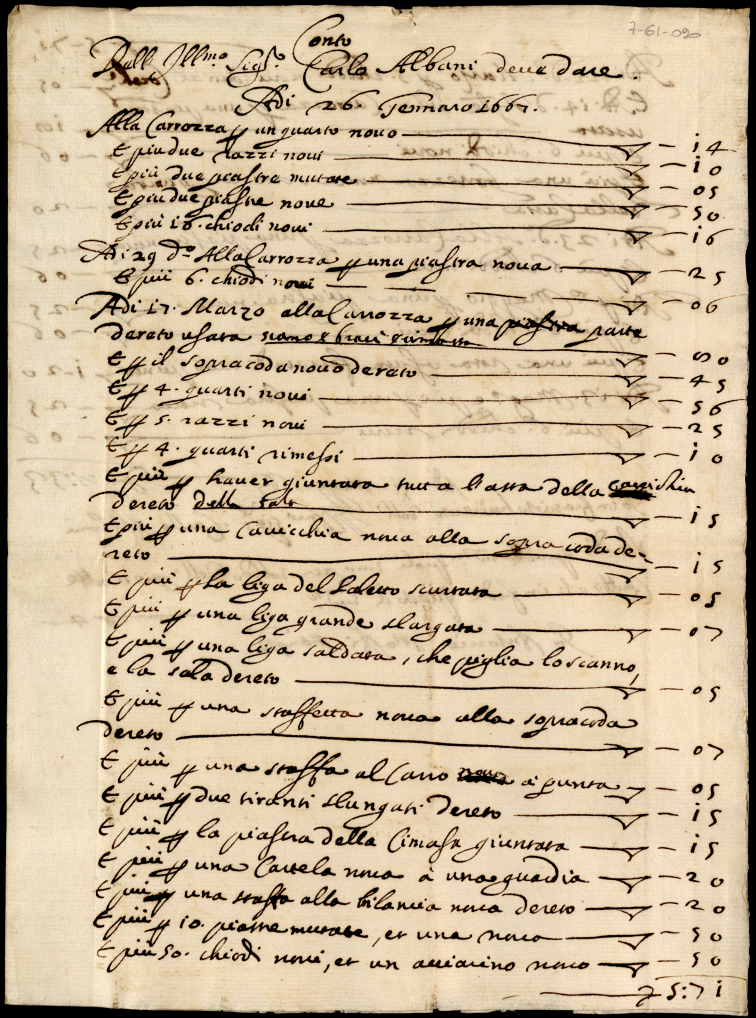 7-61-090
Conto
Dell Illmo Sigr. Carlo Albani deve dare.
Adi 26 Gennaro 1667.
Alla Carrozza p un quarto novo — 14
E piu due razzi novi — 10
E piu due piastre mutate — 05
E piu due piastre nove — 50
E piu 16. chiodi novi — 16
Adi 29 do. Alla Carrozza p una piastra nova — 25
E piu 6. chiodi novi — 06
Adi 17. Marzo alla Carrozza p una piastra parte
dereto usata — 80
E p il sopracoda novo dereto — 45
E p 4. quarti novi — 56
E p 5. razzi novi — 25
E p 4. quarti rimessi — 10
E piu p haver giuntata tutta l'asta della
dereto della — 15
E piu p una Cavicchia nova alla sopra coda de-
reto — 15
E piu p la liga del scurtata — 05
E piu p una liga grande slargata — 07
E piu p una liga saldata, che piglia lo scanno,
e la sala dereto — 05
E piu p una staffetta nova alla sopracoda
dereto — 07
E piu p una staffa al Carro nova a punta — 05
E piu p due tiranti slungati dereto — 15
E piu p la piastra della Cimasa giuntata — 15
E piu p una Cartela nova à una guardia — 20
E piu p una staffa alla bilancia nova dereto — 20
E piu p 10. piastre mutate, et una nova — 50
E piu 50. chiodi novi, et un acciarino novo — 50
5:71